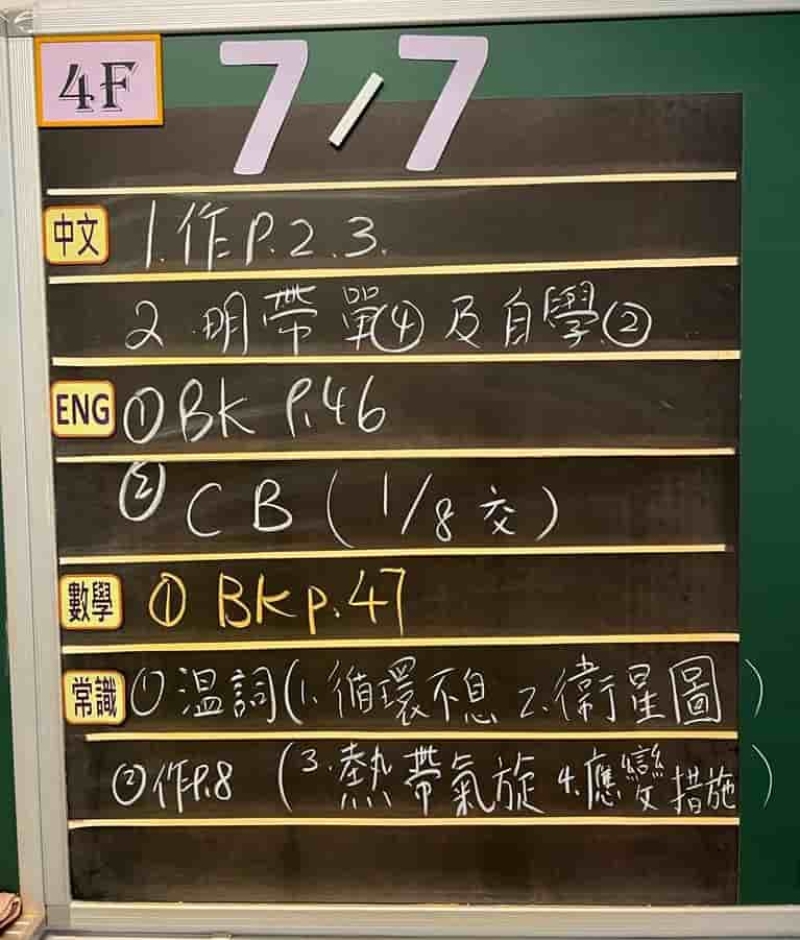 4F 7/7
中文 1.作P.2.3.
2.明帶單④及自學②
ENG ①BK P.46
② CB (1/8交)
數學 ① BK p.47
常識 ①温詞(1.循環不息 2.衛星圖)
②作P.8 (3.熱帶氣旋 4.應變措施)